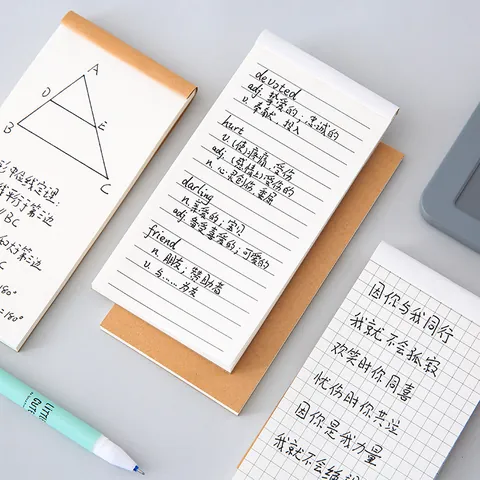 A
D
E
B
C
中位线定理:
平行于第三边
BC
的第三边
180°
=180°
devoted
adj. 挚爱的;忠诚的
v. 奉献,投入
hurt
v. (使)疼痛,受伤
adj. (感情上)受伤的
n. 心灵创伤,委屈
darling
n. 亲爱的;宝贝
adj. 备受喜爱的;可爱的
friend
n. 朋友;赞助者
v. 与……为友
因你与我同行
我就不会孤寂
欢笑时你同喜
忧伤时你共泣
因你是我力量
我就不会绝
LITTLE
CUTE